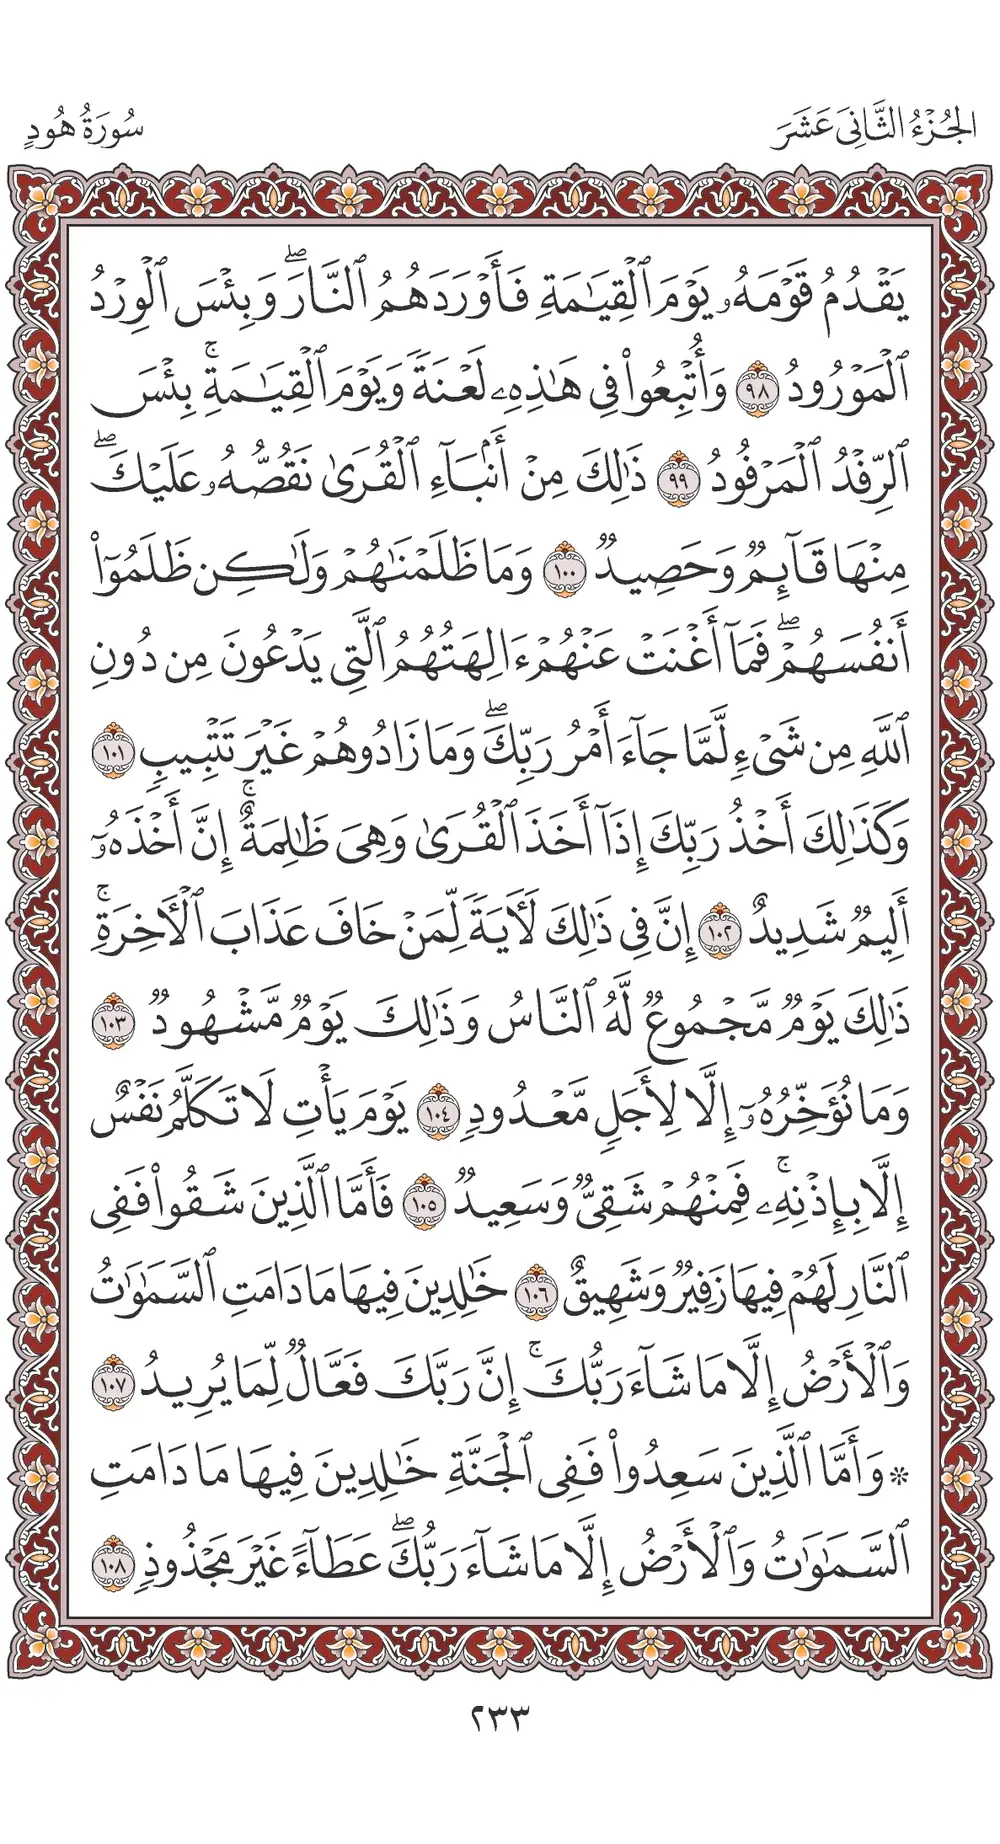 الجُزْءُ الثَّانِىَ عَشَرَ
سُورَةُ هُودٍ
يَقْدُمُ قَوْمَهُۥ يَوْمَ ٱلْقِيَٰمَةِ فَأَوْرَدَهُمُ ٱلنَّارَۖ وَبِئْسَ ٱلْوِرْدُ
ٱلْمَوْرُودُ ٩٨ وَأُتْبِعُوا۟ فِى هَٰذِهِۦ لَعْنَةً وَيَوْمَ ٱلْقِيَٰمَةِۚ بِئْسَ
ٱلرِّفْدُ ٱلْمَرْفُودُ ٩٩ ذَٰلِكَ مِنْ أَنۢبَآءِ ٱلْقُرَىٰ نَقُصُّهُۥ عَلَيْكَۖ
مِنْهَا قَآئِمٌ وَحَصِيدٌ ١٠٠ وَمَا ظَلَمْنَٰهُمْ وَلَٰكِن ظَلَمُوٓا۟
أَنفُسَهُمْۖ فَمَآ أَغْنَتْ عَنْهُمْ ءَالِهَتُهُمُ ٱلَّتِى يَدْعُونَ مِن دُونِ
ٱللَّهِ مِن شَىْءٍ لَّمَّا جَآءَ أَمْرُ رَبِّكَۖ وَمَا زَادُوهُمْ غَيْرَ تَتْبِيبٍ ١٠١
وَكَذَٰلِكَ أَخْذُ رَبِّكَ إِذَآ أَخَذَ ٱلْقُرَىٰ وَهِىَ ظَٰلِمَةٌۚ إِنَّ أَخْذَهُۥٓ
أَلِيمٌ شَدِيدٌ ١٠٢ إِنَّ فِى ذَٰلِكَ لَءَايَةً لِّمَنْ خَافَ عَذَابَ ٱلْءَاخِرَةِۚ
ذَٰلِكَ يَوْمٌ مَّجْمُوعٌ لَّهُ ٱلنَّاسُ وَذَٰلِكَ يَوْمٌ مَّشْهُودٌ ١٠٣
وَمَا نُؤَخِّرُهُۥٓ إِلَّا لِأَجَلٍ مَّعْدُودٍ ١٠٤ يَوْمَ يَأْتِ لَا تَكَلَّمُ نَفْسٌ
إِلَّا بِإِذْنِهِۦۚ فَمِنْهُمْ شَقِىٌّ وَسَعِيدٌ ١٠٥ فَأَمَّا ٱلَّذِينَ شَقُوا۟ فَفِى
ٱلنَّارِ لَهُمْ فِيهَا زَفِيرٌ وَشَهِيقٌ ١٠٦ خَٰلِدِينَ فِيهَا مَا دَامَتِ ٱلسَّمَٰوَٰتُ
وَٱلْأَرْضُ إِلَّا مَا شَآءَ رَبُّكَۚ إِنَّ رَبَّكَ فَعَّالٌ لِّمَا يُرِيدُ ١٠٧
۞ وَأَمَّا ٱلَّذِينَ سَعِدُوا۟ فَفِى ٱلْجَنَّةِ خَٰلِدِينَ فِيهَا مَا دَامَتِ
ٱلسَّمَٰوَٰتُ وَٱلْأَرْضُ إِلَّا مَا شَآءَ رَبُّكَۖ عَطَآءً غَيْرَ مَجْذُوذٍ ١٠٨
٢٣٣